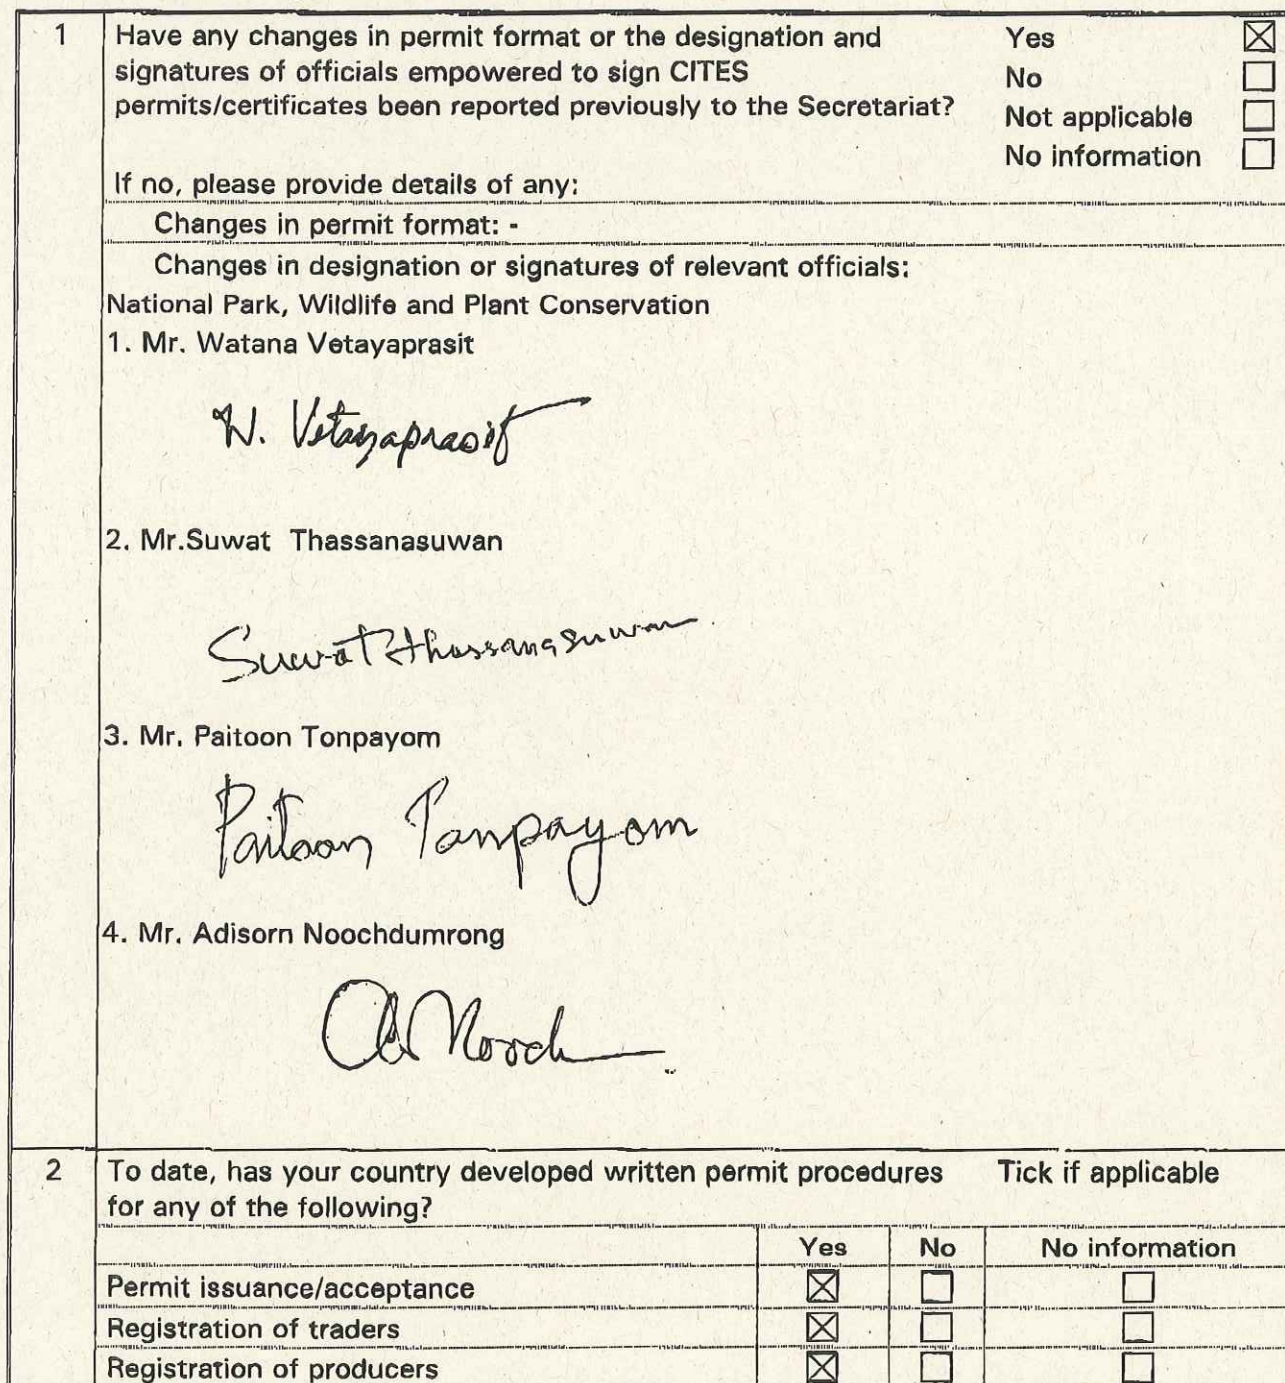 1 Have any changes in permit format or the designation and Yes ☒
signatures of officials empowered to sign CITES No ☐
permits/certificates been reported previously to the Secretariat? Not applicable ☐
No information ☐
If no, please provide details of any:
Changes in permit format: -
Changes in designation or signatures of relevant officials:
National Park, Wildlife and Plant Conservation
1. Mr. Watana Vetayaprasit
W. Vetayaprasit
2. Mr.Suwat Thassanasuwan
Suwat Thassanasuwan
3. Mr. Paitoon Tonpayom
Paitoon Tanpayom
4. Mr. Adisorn Noochdumrong
Nooch
2 To date, has your country developed written permit procedures Tick if applicable
for any of the following?
Yes No No information
Permit issuance/acceptance ☒ ☐ ☐
Registration of traders ☒ ☐ ☐
Registration of producers ☒ ☐ ☐